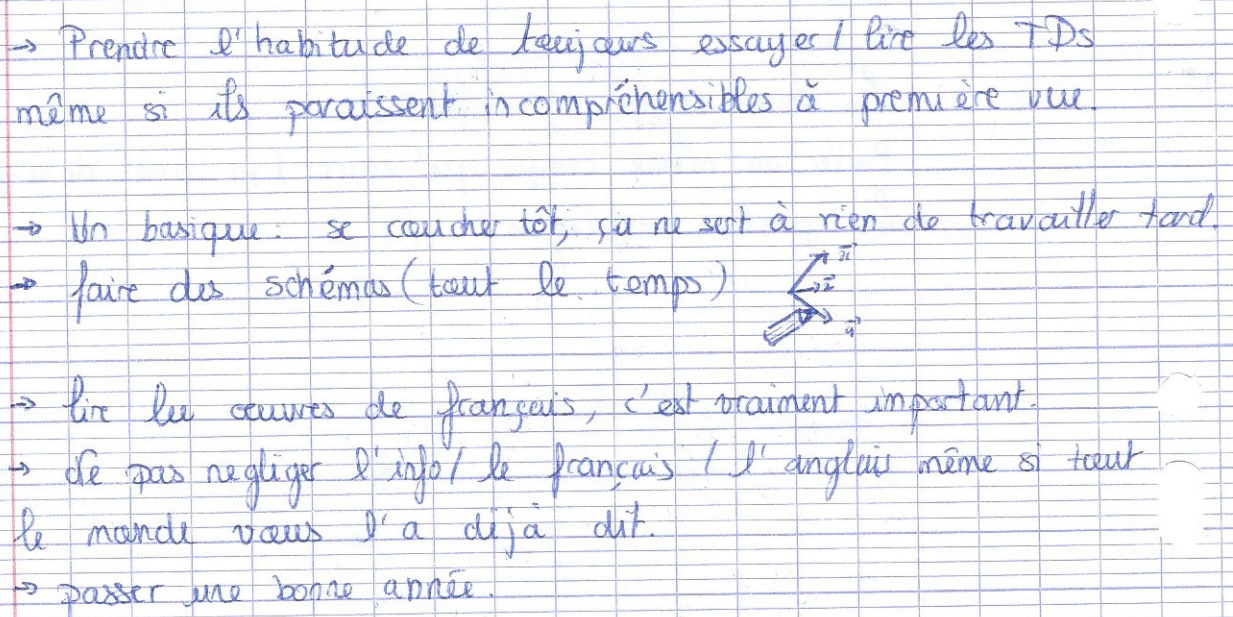 → Prendre l'habitude de toujours essayer / lire les TDs
même si ils paraissent incompréhensibles à première vue.
→ Un basique : se coucher tôt, ça ne sert à rien de travailler tard.
→ faire des schémas (tout le temps)
x⃗
z⃗
y⃗
→ lire les œuvres de français, c'est vraiment important.
→ de pas negliger l'info / le français / l'anglais même si tout
le monde vous l'a déjà dit.
→ passer une bonne année.